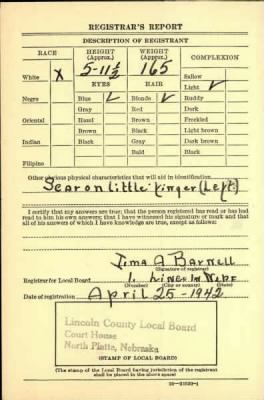 REGISTRAR'S REPORT
DESCRIPTION OF REGISTRANT
RACE HEIGHT (Approx.) WEIGHT (Approx.) COMPLEXION
5-11½ 165 Sallow
White X EYES HAIR Light ✓
Negro Blue ✓ Blonde ✓ Ruddy
Gray Red Dark
Oriental Hazel Brown Freckled
Brown Black Light brown
Indian Black Gray Dark brown
Bald Black
Filipino
Other obvious physical characteristics that will aid in identification
Scar on little finger (Left)
I certify that my answers are true; that the person registered has read or has had
read to him his own answers; that I have witnessed his signature or mark and that
all of his answers of which I have knowledge are true, except as follows:
A Barnell
(Signature of registrar)
Registrar for Local Board 1 Lincoln Nebr
(Number) (City or county) (State)
Date of registration April 25 - 1942
Lincoln County Local Board
Court House
North Platte, Nebraska
(STAMP OF LOCAL BOARD)
(The stamp of the Local Board having jurisdiction of the registrant
shall be placed in the above space)